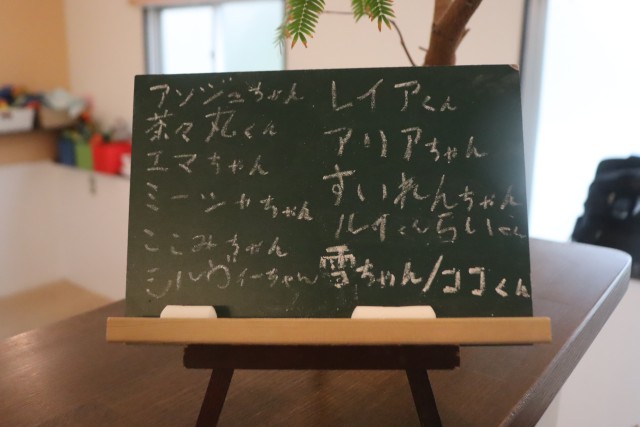 アンジュちゃん
茶々丸くん
エマちゃん
ミーシャちゃん
ここみちゃん
シルヴィーちゃん
レイアくん
アリアちゃん
すいれんちゃん
ルイくんらいくん
雪ちゃん/ココくん